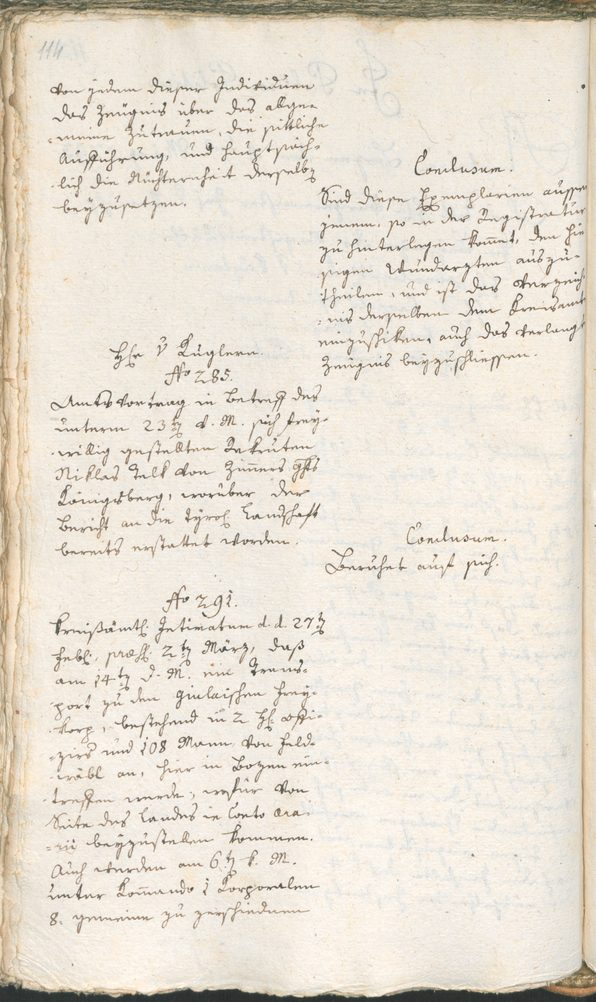 114
von jedem dieser Individuen
das Zeugnis über das allge-
-meine Zutrauen, die sittliche
Aufführung, und hauptsäch-
-lich die Nüchternheit derselben
beyzusetzen.
Conclusum.
Sind diese Exemplarien ausser
jenem, so in der Registratur
zu hinterlegen kommt, den hie-
sigen Wundärzten auszu-
theilen, und ist das Verzeich-
-nis derselben dem Kreisamte
einzuschiken, auch das verlangte
Zeugnis beyzuschliessen.
H. v Kuglern.
No 285.
Amtsvortrag in Betreff des
unterm 23ten d. M. sich frey-
-willig gestellten Rekruten
Niklas Talk von Zimmers Ghts
Königsberg, worüber der
Bericht an die tyrol. Landschaft
bereits erstattet worden.
Conclusum.
Beruhet auf sich.
No 291.
Kreisämtl. Intimatum d. d. 27ten
Febr. präs. 2ten März, daß
am 14ten d. M. ein Trans-
port zu den Giulaischen Frey-
-korp, bestehend in 2 H. Offi-
-ziers und 108 Mann von Feld-
-webl an, hier in Bozen ein-
-treffen werde, wofür von
Seite des Landes in Conto Aera-
-rii beyzustellen kommen.
Auch werden am 6ten d. M.
unter Kommando 1 Korporalen
8. gemeine zu verschiednen